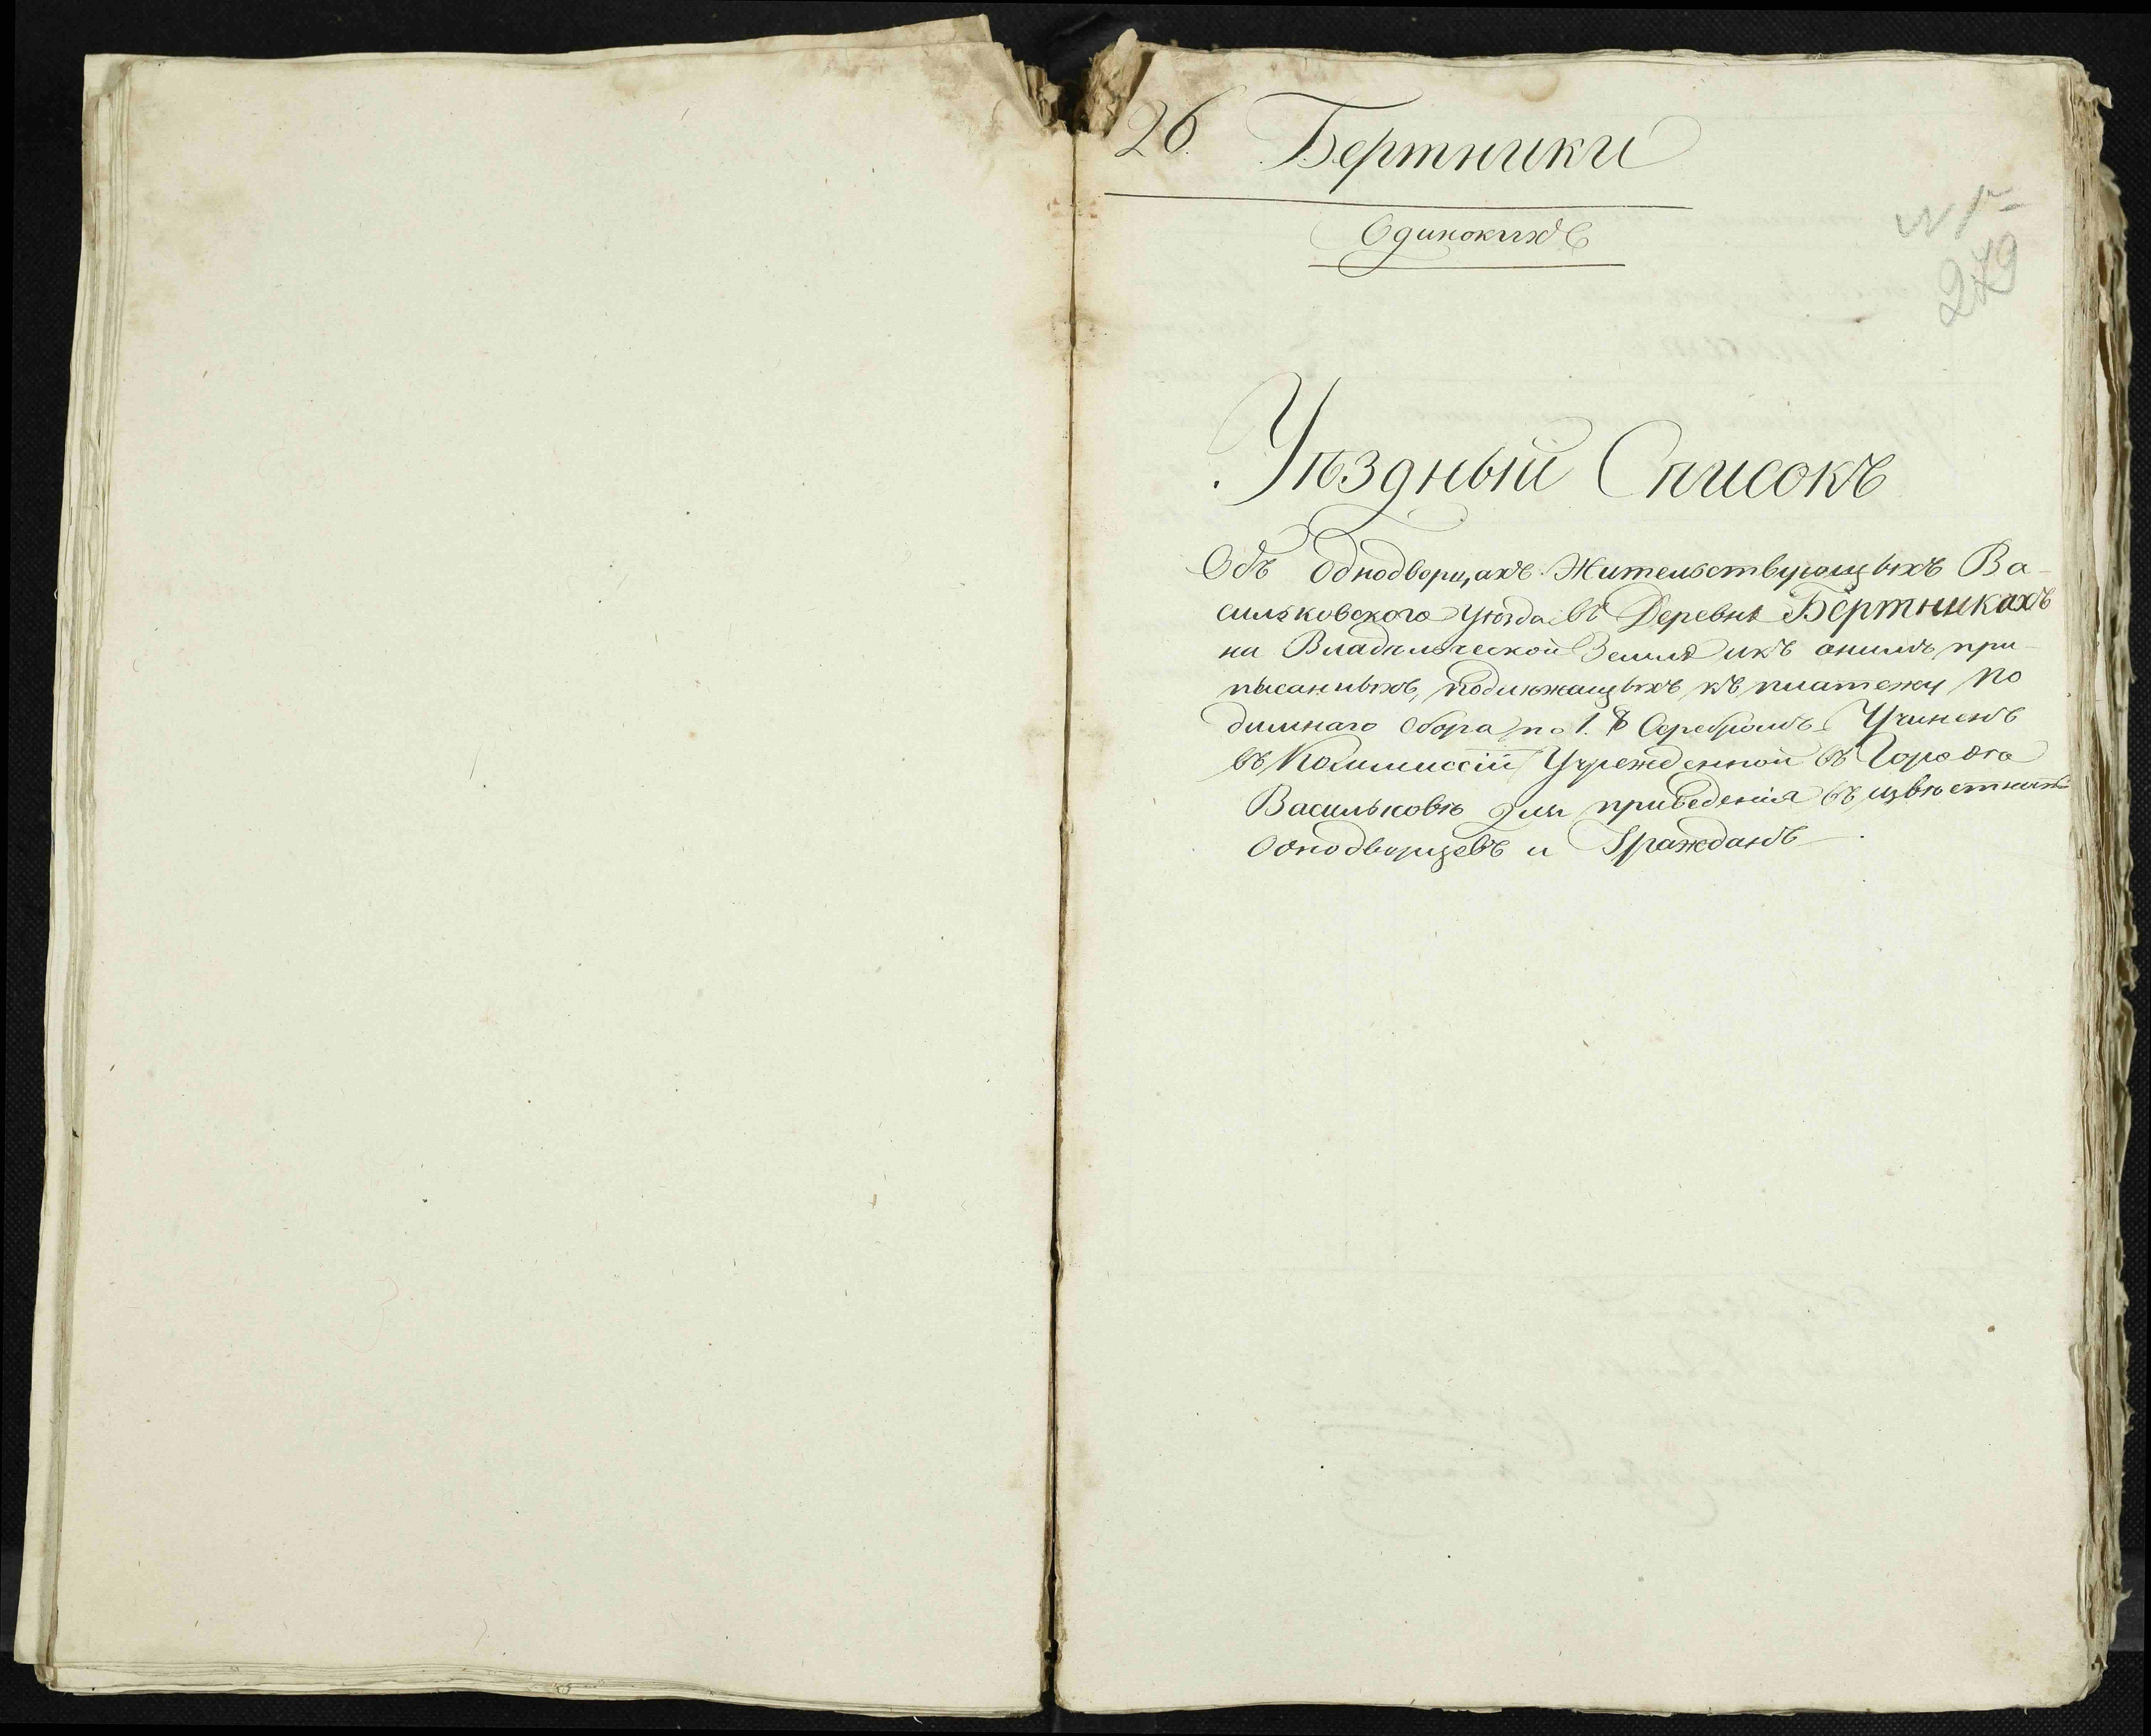 26. Бертники
Одинокихъ
279
Уѣздный Списокъ
Объ Однодворцахъ Жительствующыхъ Ва-
сильковского Уѣзда въ Деревнѣ Бертникахъ
на Владѣльческой Землѣ икъ онимъ при-
писанныхъ, подлежащыхъ къ платежу По
димнаго Сбора по 1. Серебромъ Учиненъ
въ Коммиссіи Учрежденной въ Городѣ
Васильковѣ для приведенія въ извѣстность
Однодворцевъ и Гражданъ